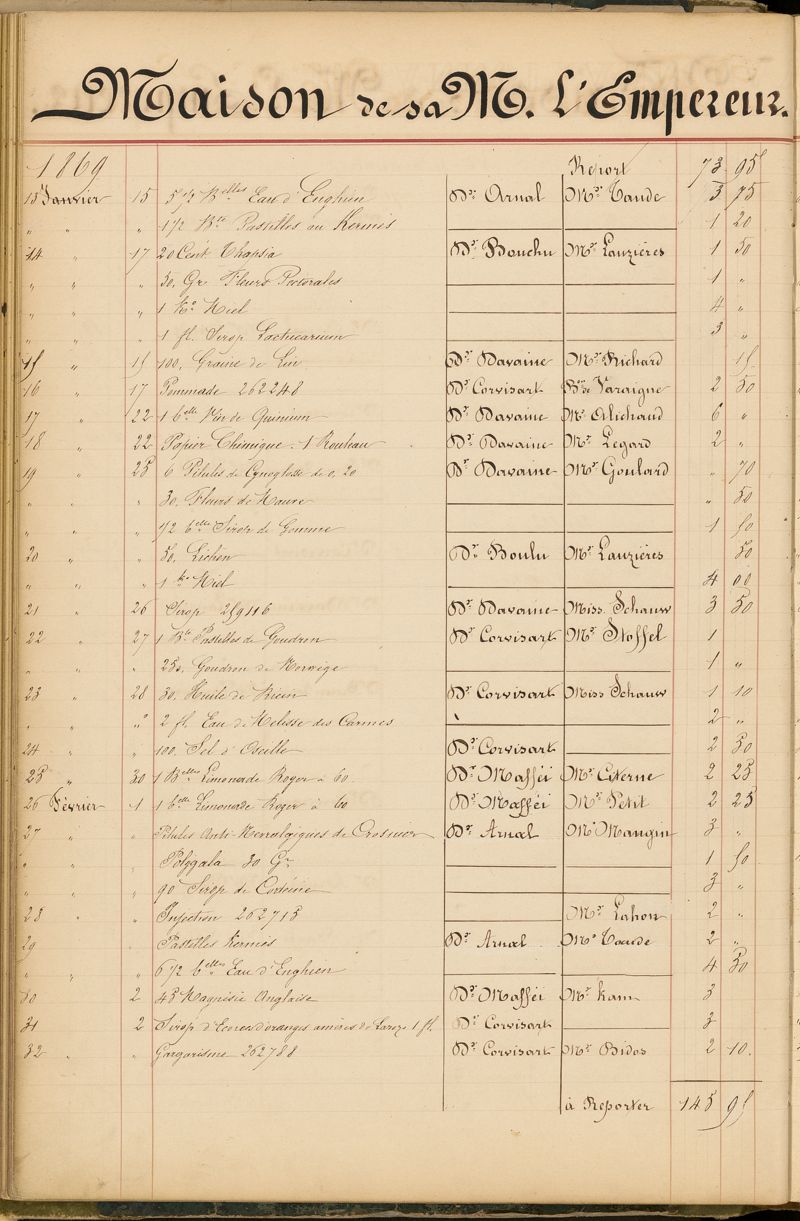 Maison de sa M. L'Empereur.
1869 Report 73 95
13 Janvier 15 5 1/2 Belles Eau d'Enghien Dr Arnal Mr Taude 3 75
" " " 1 1/2 Bte Pastilles au Kermès 1 20
14 " 17 20 Cent. Thapsia Dr Bouchu Mr Lauzières 1 50
" " " 50. Gr. Fleurs Pectorales 1 "
" " " 1 Ko Miel 4 "
" " " 1 fl. Sirop Lactucarium 3 "
15 " 15 100. Graine de Lin Dr Davaine Mr Richard 15
16 " 17 Pommade 262248 Dr Corvisart Bn de Varaigne 2 50
17 " 22 1 belle Vin de Quinium Dr Davaine Mr Alichaud 6 "
18 " 22 Papier Chimique. 1 Rouleau Dr Davaine Mr Legard 2 "
19 " 25 6 Pilules de Cynoglosse de 0,20 Dr Davaine Mr Goulard " 70
" " " 30. Fleurs de Mauve " 50
" " " 1/2 belle Sirop de Gomme 1 50
20 " " 50. Lichen Dr Boulu Mr Lauzières 50
" " " 1 ko Miel 4 00
21 " 26 Sirop 259116 Dr Davaine Miss. Schauw 3 50
22 " 27 1 Bte Pastilles de Goudron Dr Corvisart Mr Stoffel 1
" " " 250. Goudron de Norwège 1 "
23 " 28 30. Huile de Ricin Dr Corvisart Miss Schauw 1 10
" " " 2 fl. Eau de Mélisse des Carmes 2 "
24 " " 100. Sel d'Oseille Dr Corvisart 2 50
25 " 30 1 Belle Limonade Roger à 60. Dr Maffei Mr Citerne 2 25
26 Février 1 1 belle Limonade Roger à 60 Dr Maffei Mr Petit 2 25
27 " " Pilules Anti-Nevralgiques de Crosnier Dr Arnal Mr Mangin 3 "
" " " Polygala 30 Gr. 1 50
" " " 90 Sirop de Codéine 3 "
28 " " Injection 262715 Mr Lahon 2 "
29 " Pastilles Kermès Dr Arnal Mr Taude 2 "
" " " 6 1/2 belles Eau d'Enghien 4 50
30 2 45 Magnésie Anglaise Dr Maffei Mr Kann 3
31 2 Sirop d'Ecorces d'oranges amères de Laroze 1 fl. Dr Corvisart 3
32 " " Gargarisme 262788 Dr Corvisart Mr Bidos 2 10.
à Reporter 145 95